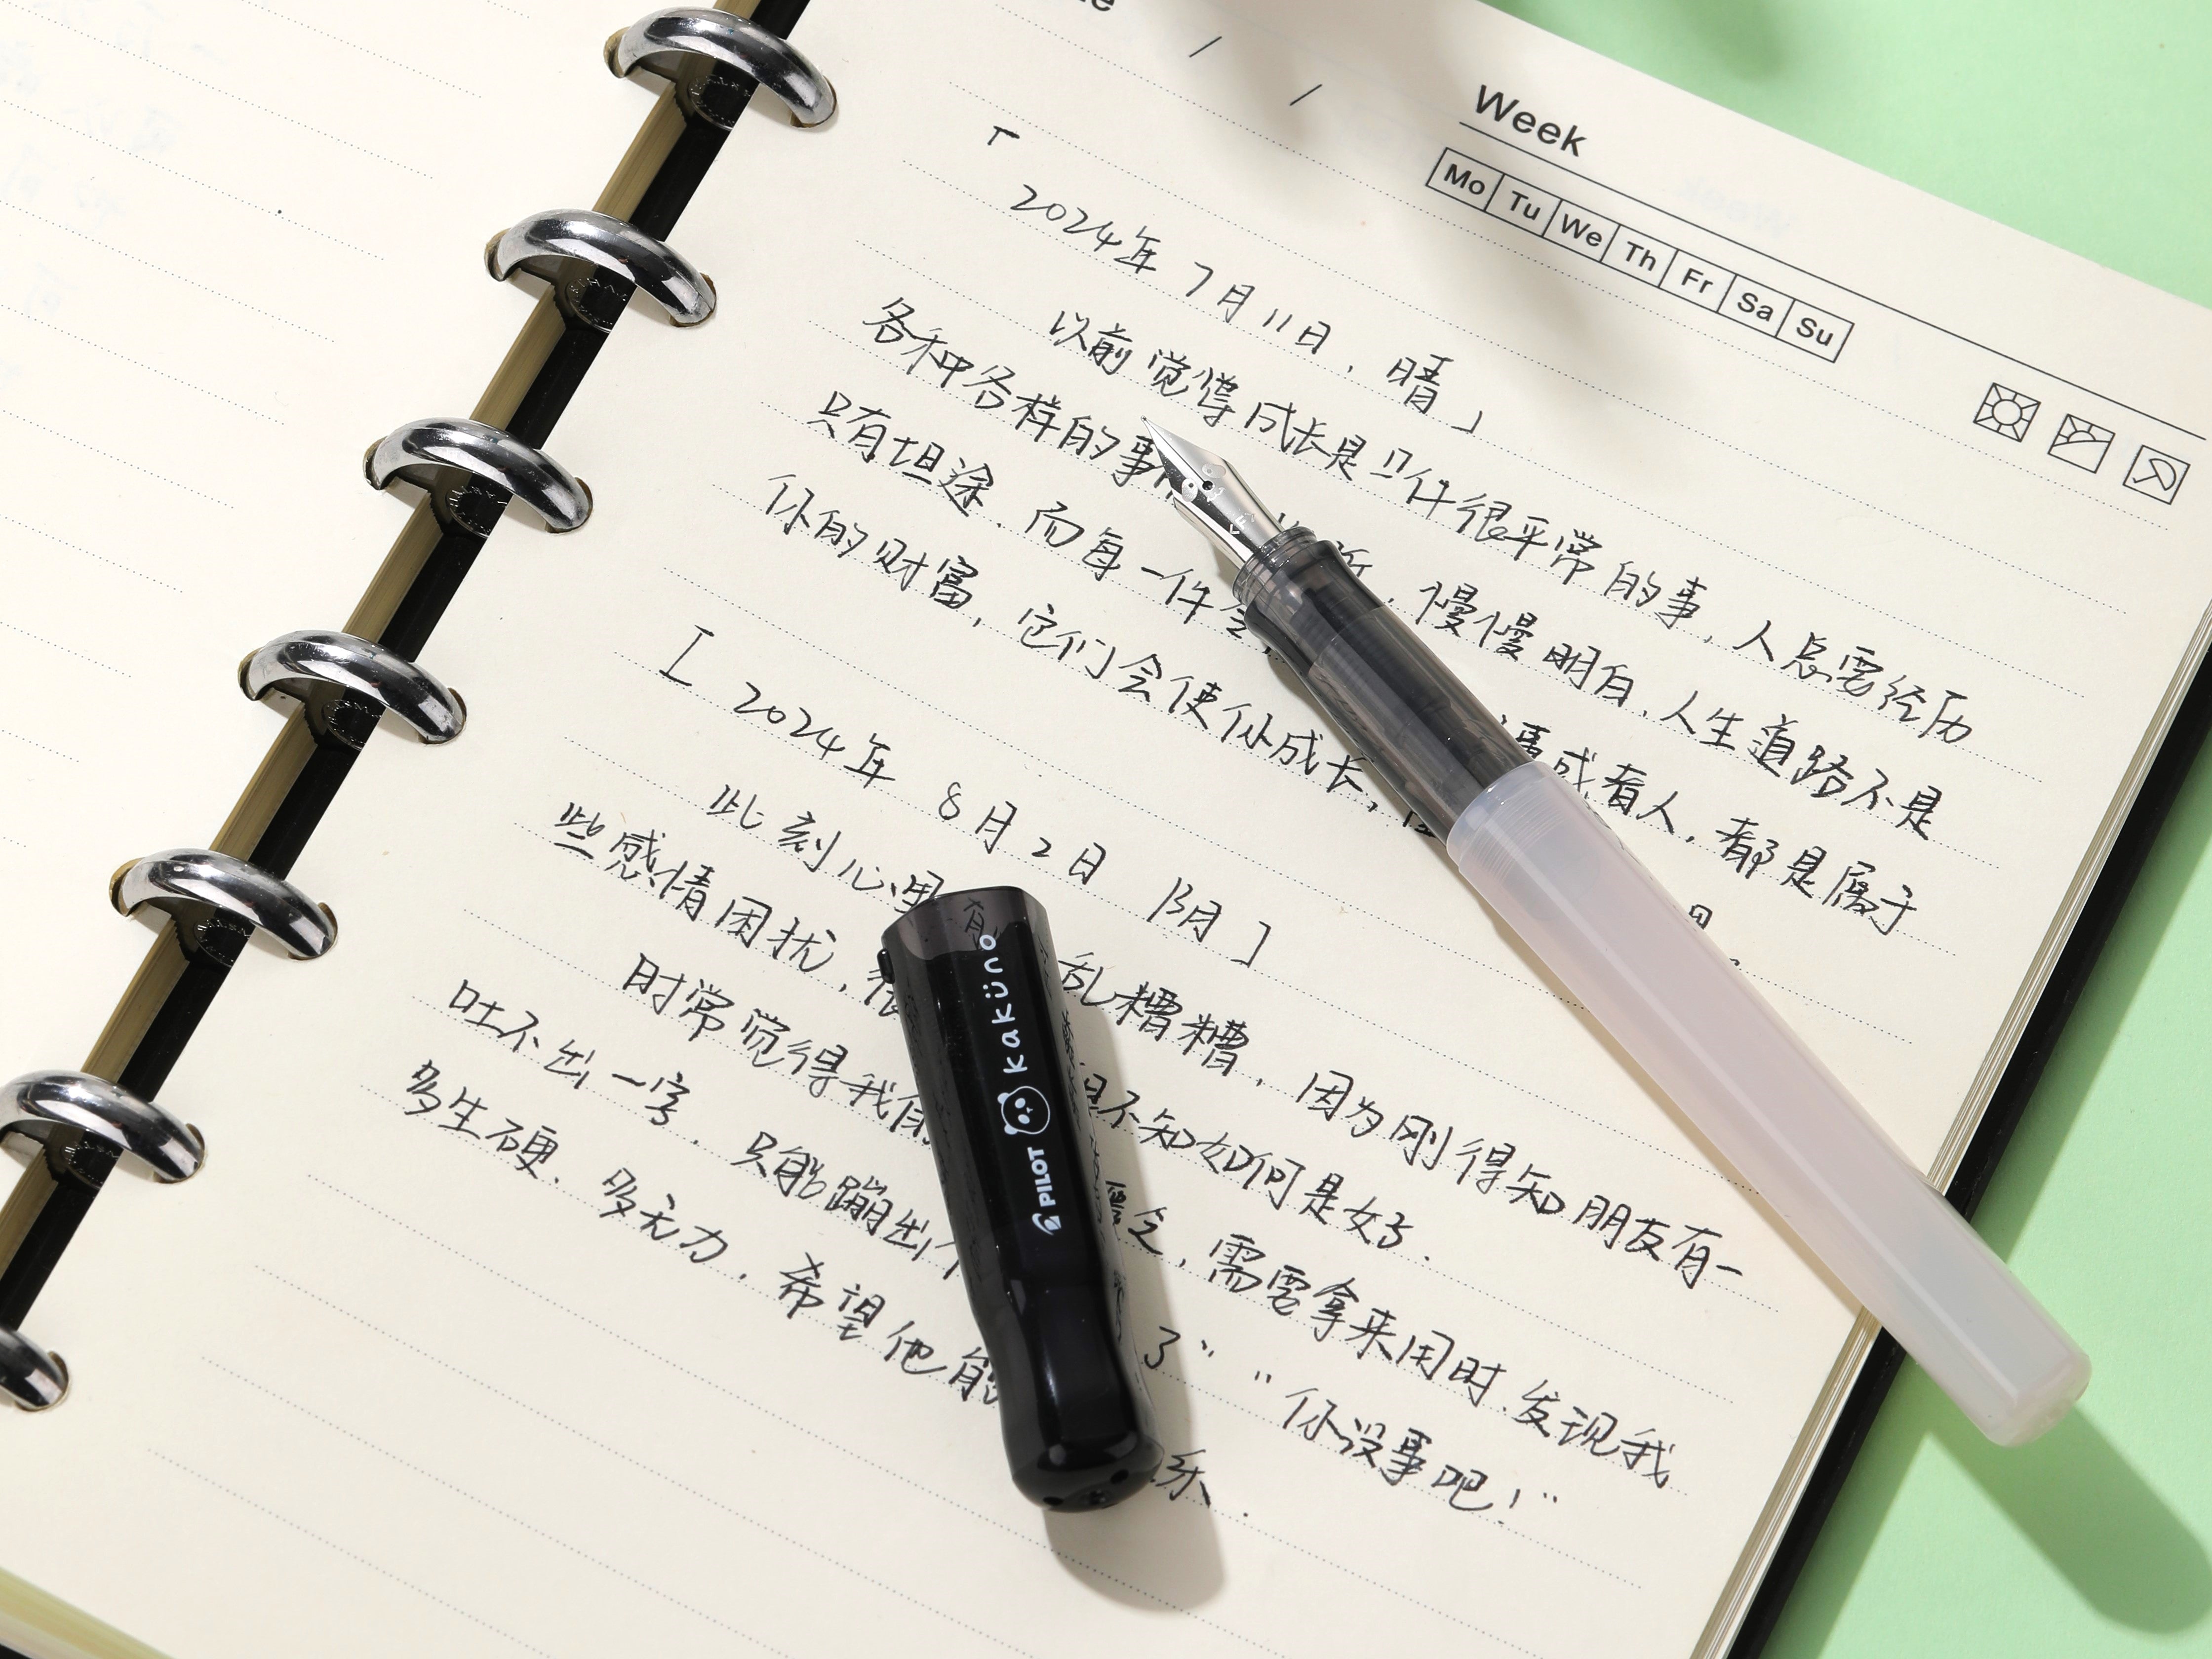 Week
Mo Tu We Th Fr Sa Su
「2024年7月11日.晴」
以前觉得成长是一件很平常的事.人总要经历
各种各样的事 .慢慢明白.人生道路不是
只有坦途.而每一件 或者人.都是属于
你的财富,它们会使你成长,
[2024年8月2日 阴]
此刻心里有 乱糟糟.因为刚得知朋友有一
些感情困扰, 不知如何是好.
时常觉得我 ,需要拿来用时.发现我
吐不出一字.只能蹦出个 了" "你没事吧!"
多生硬.多无力.希望他能 乐.
PILOT kaküno